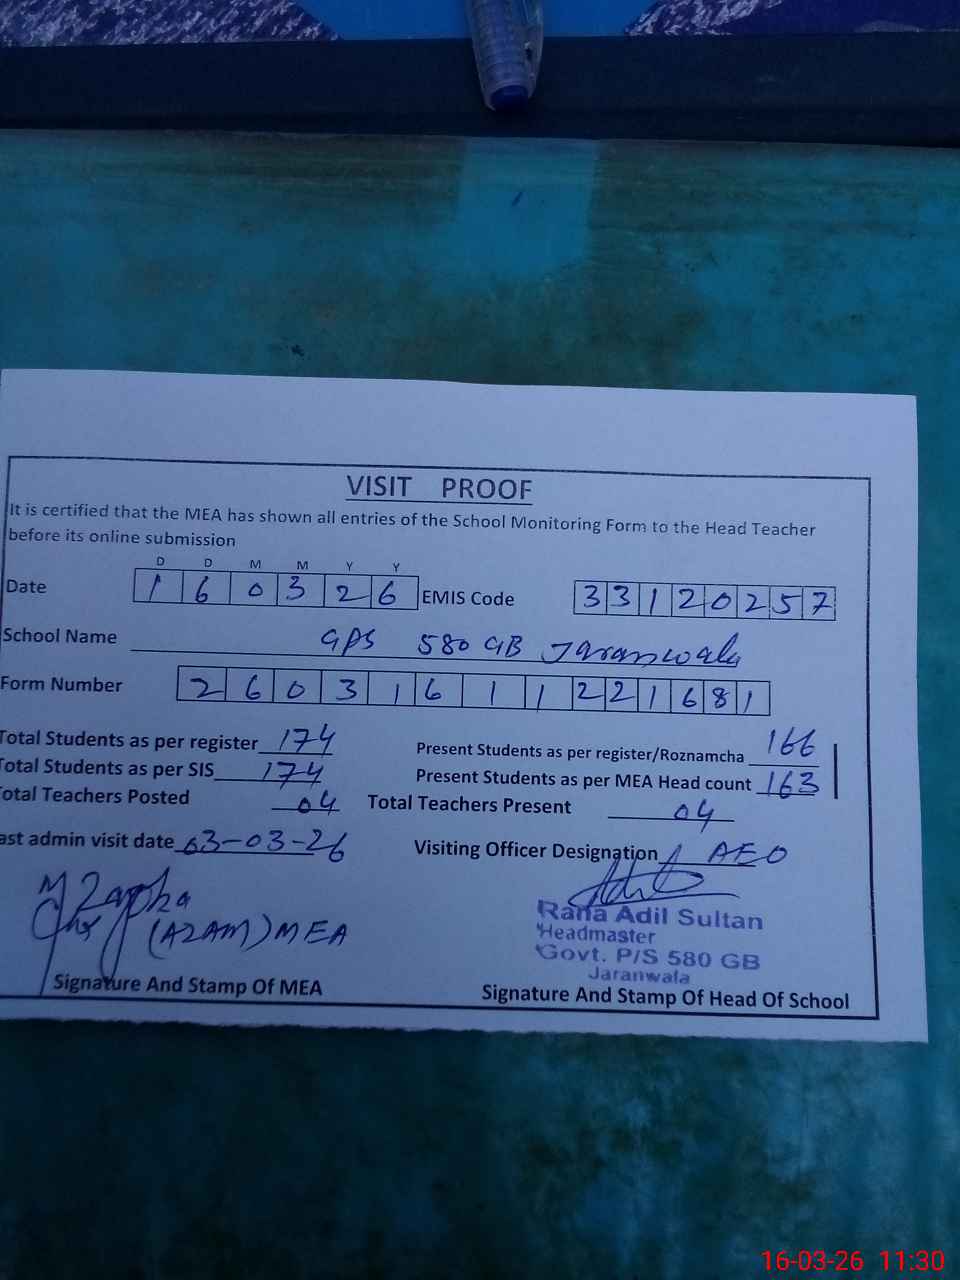 VISIT PROOF
It is certified that the MEA has shown all entries of the School Monitoring Form to the Head Teacher
before its online submission
D D M M Y Y
Date 1 6 0 3 2 6 EMIS Code 3 3 1 2 0 2 5 7
School Name GPS 580 GB Jaranwala
Form Number 2 6 0 3 1 6 1 1 2 2 1 6 8 1
Total Students as per register 174 Present Students as per register/Roznamcha 166
Total Students as per SIS 174 Present Students as per MEA Head count 163
Total Teachers Posted 04 Total Teachers Present 04
ast admin visit date 03-03-26 Visiting Officer Designation AEO
(AZAM) MEA
Rana Adil Sultan
Headmaster
Govt. P/S 580 GB
Jaranwala
Signature And Stamp Of MEA Signature And Stamp Of Head Of School
16-03-26 11:30